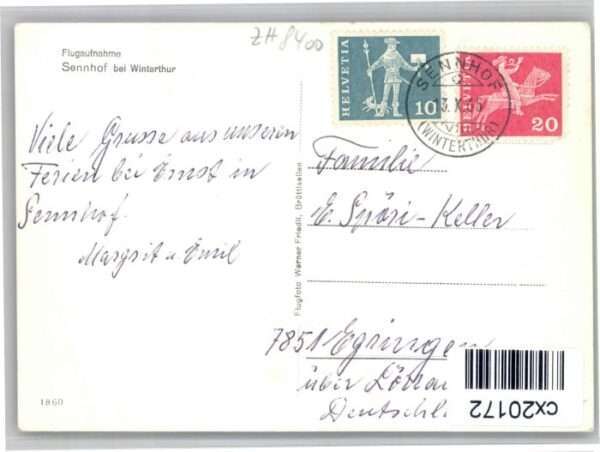 Flugaufnahme
Sennhof bei Winterthur
ZH 8400
HELVETIA
10
HELVETIA
20
SENNHOF
(WINTERTHUR)
Viele Grüsse aus unseren
Ferien bei Ernst in
Sennhof.
Margrit u. Emil
Flugfoto Werner Friedli, Brüttisellen
Familie
E. Spöri-Keller
7851 Egringen
über Lörra
Deutschl
1860
cx20172